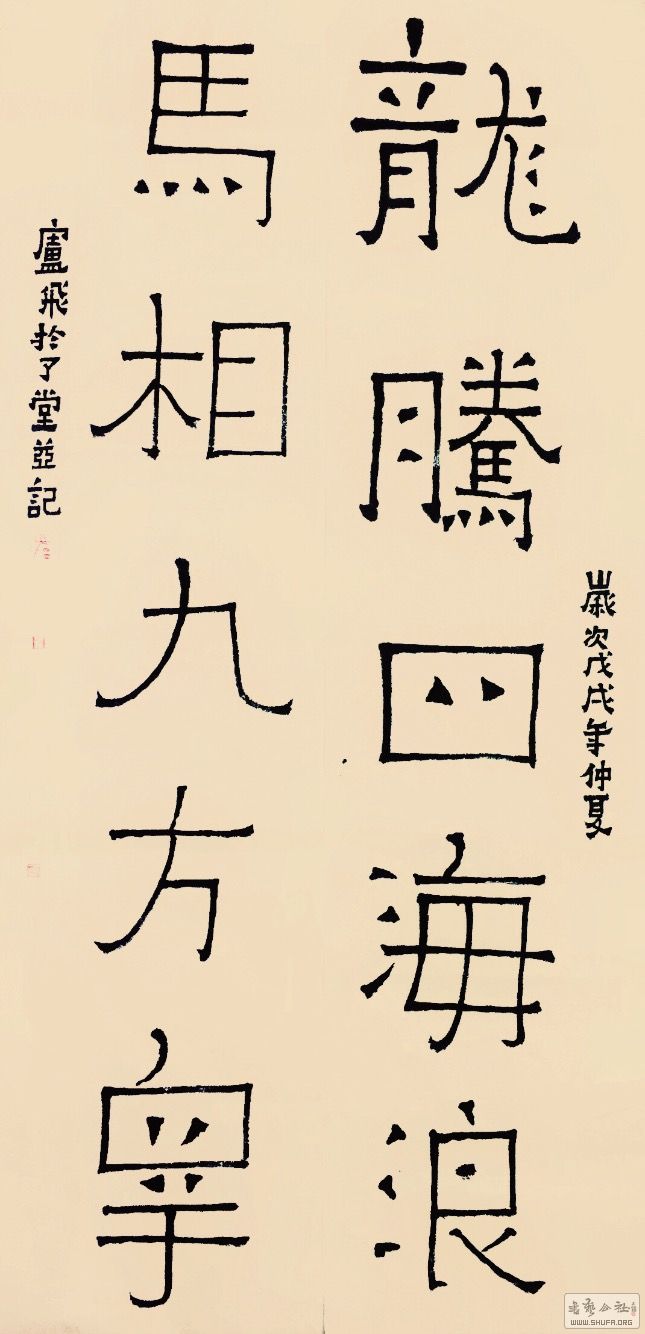 歲次戊戌年仲夏
龍騰四海浪
馬相九方皋
盧飛於了堂並記
書藝公社
WWW.SHUFA.ORG